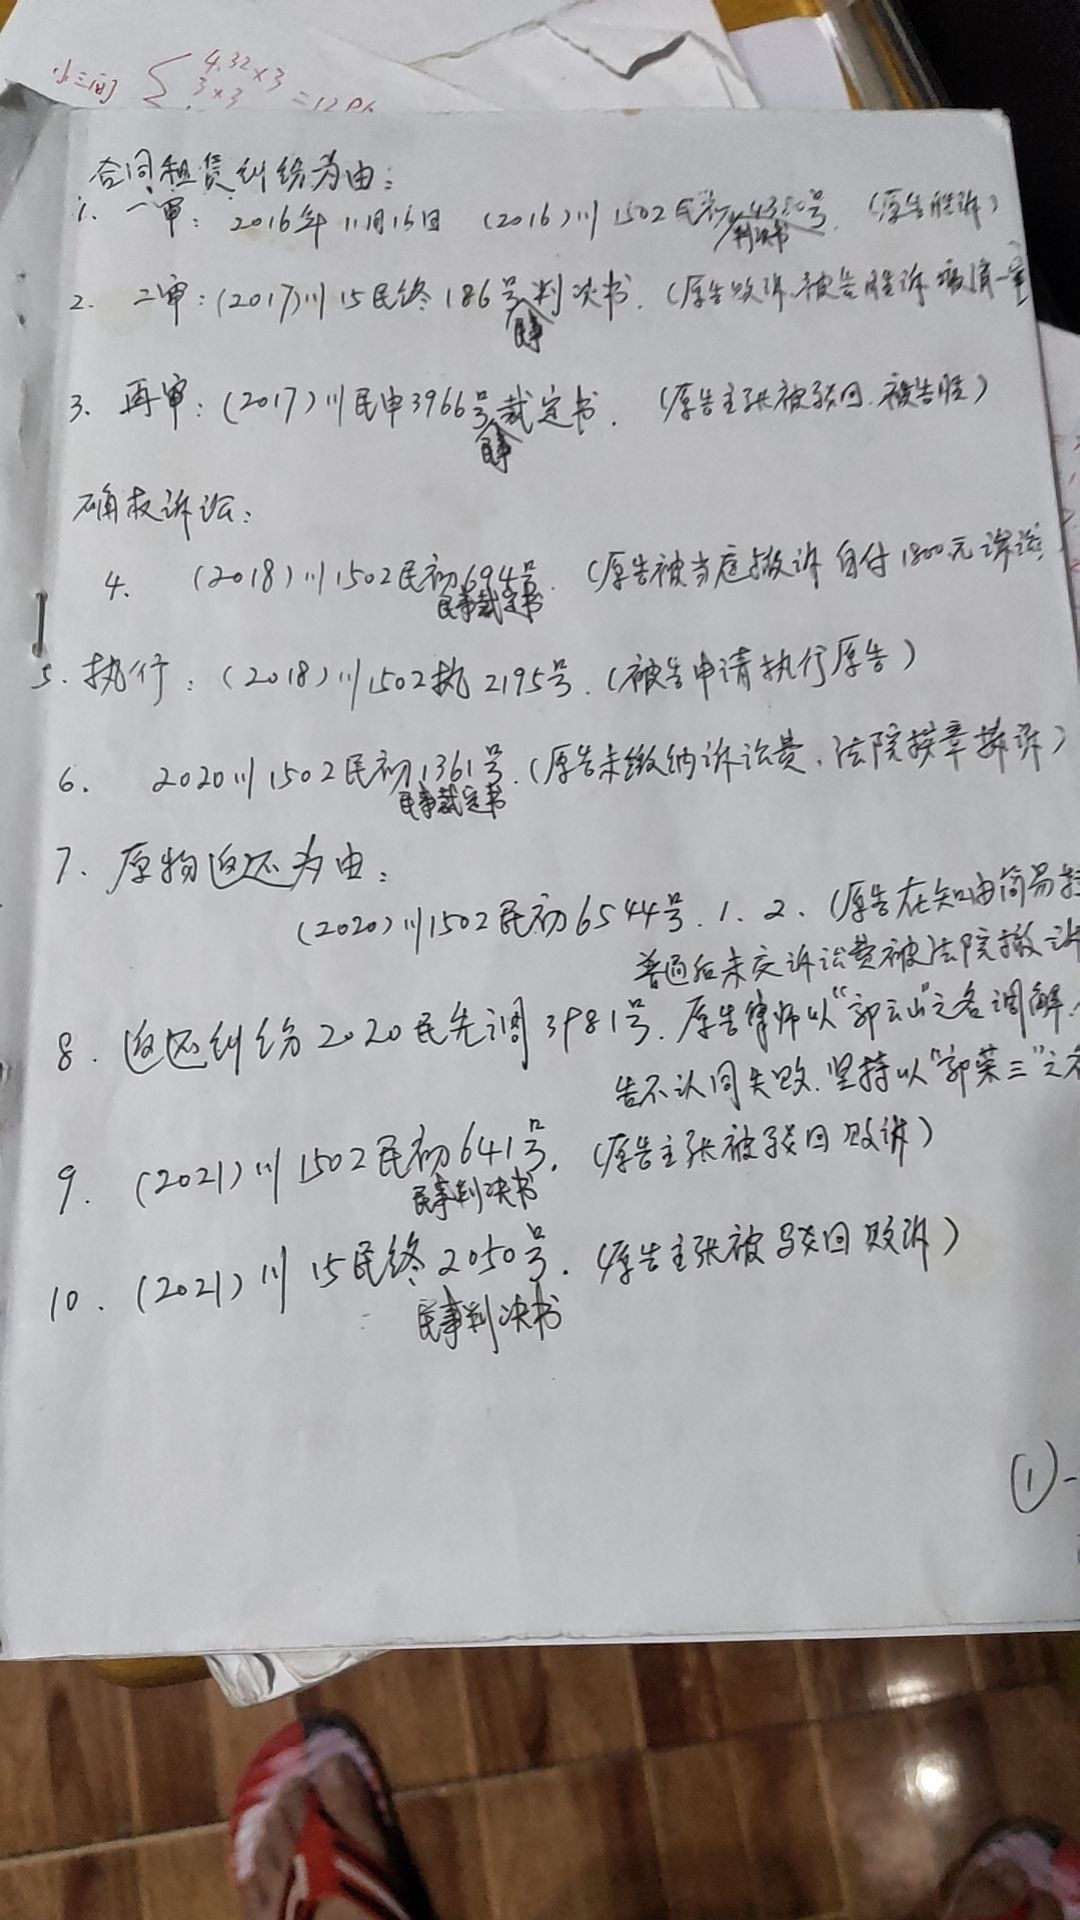 小三间 4.32×3
3×3 =12.96
合同租赁纠纷为由：
1. 一审：2016年11月15日 （2016）川1502民初4380号 （原告胜诉）
判决书
2. 二审：（2017）川15民终186号判决书. （原告败诉.被告胜诉 撤消一审
民事
3. 再审：（2017）川民申3966号裁定书. （原告主张被驳回.被告胜）
民事
确权诉讼：
4. （2018）川1502民初694号. （原告被当庭撤诉 自付1800元诉讼
民事裁定书
5. 执行：（2018）川1502执2195号. （被告申请执行原告）
6. 2020川1502民初1361号. （原告未缴纳诉讼费、法院按章撤诉）
民事裁定书
7. 原物返还为由：
（2020）川1502民初6544号. 1. 2. （原告在知由简易转
普通后未交诉讼费被法院撤诉
8. 返还纠纷2020民先调3981号. 原告律师以“郭云山”之名调解.
告不认同失败. 坚持以“郭荣三”之名
9. （2021）川1502民初641号. （原告主张被驳回败诉）
民事判决书
10. （2021）川15民终2050号. （原告主张被驳回败诉）
民事判决书
①